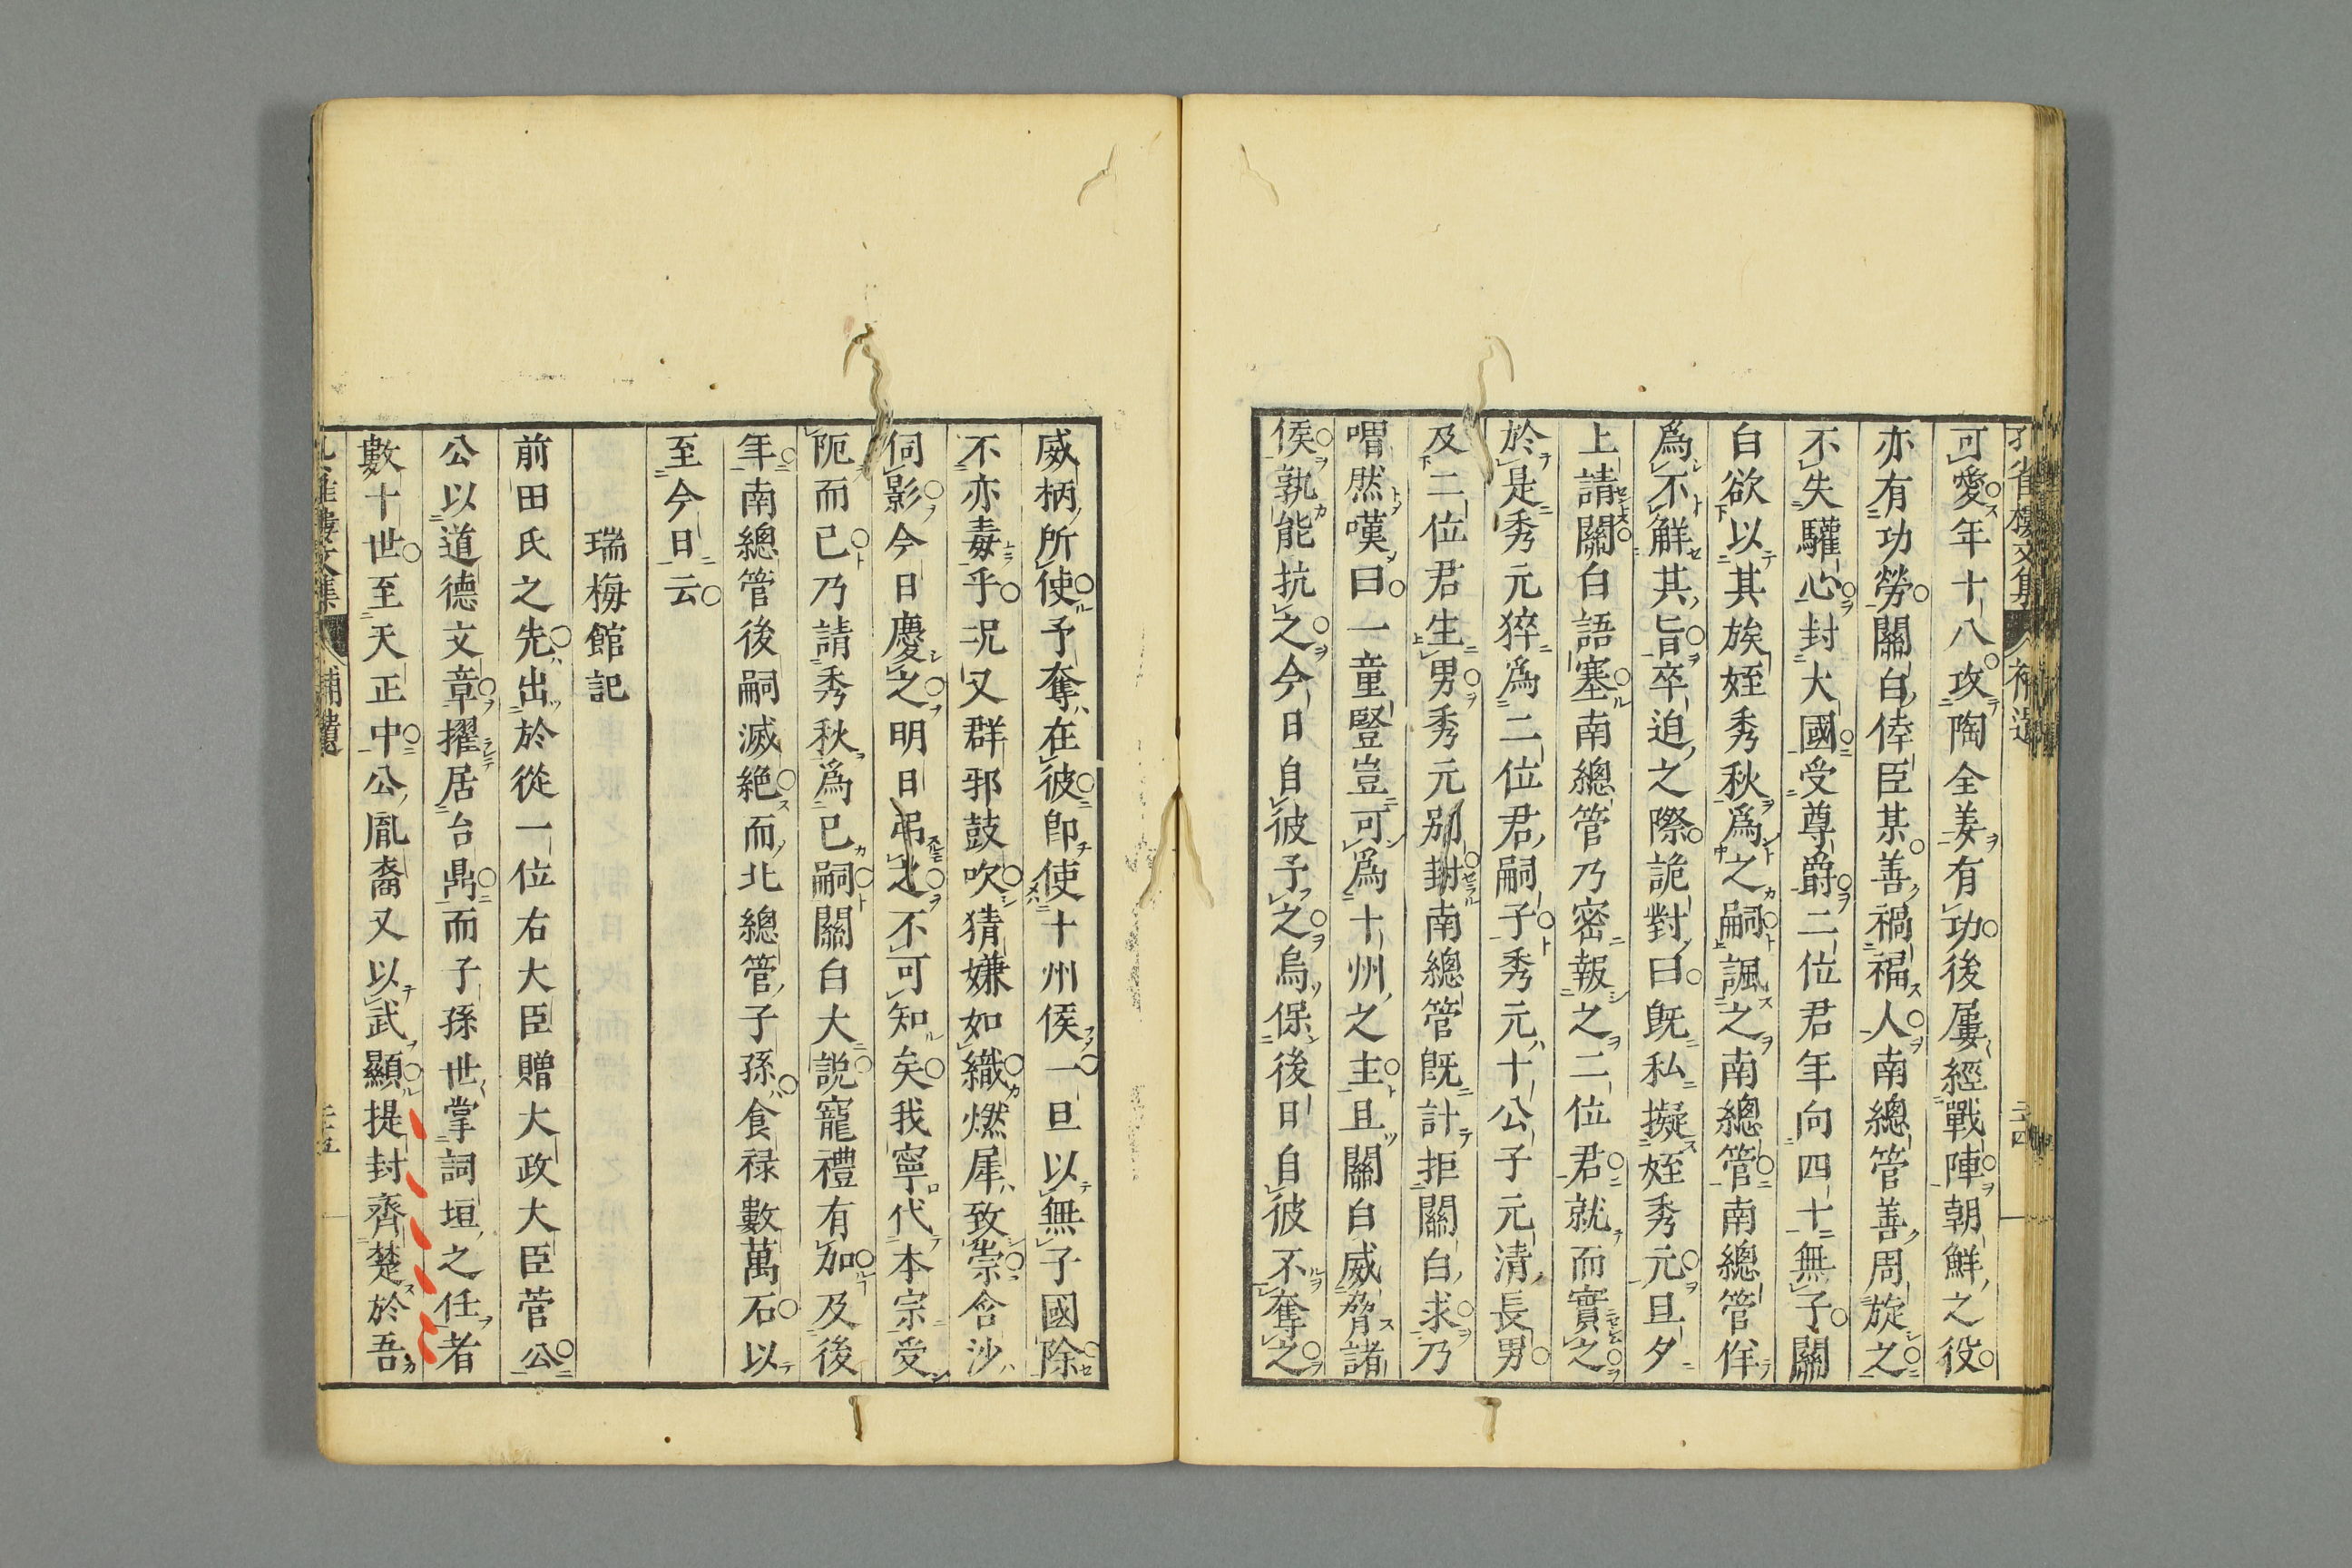 可愛年十八攻陶全姜有功後屢經戰陣朝鮮之役
亦有功勞關白倖臣某善禍福人南總管善周旋之
不失驩心封大國受尊爵二位君年向四十無子關
白欲以其族姪秀秋爲之嗣諷之南總管南總管佯
爲不解其旨卒迫之際詭對曰旣私擬姪秀元旦夕
上請關白語塞南總管乃密報之二位君就而實之
於是秀元猝爲二位君嗣子秀元十公子元清長男
及二位君生男秀元別封南總管旣計拒關白求乃
喟然嘆曰一童豎豈可爲十州之主且關白威脅諸
侯孰能抗之今日自彼予之烏保後日自彼不奪之
威柄所使予奪在彼卽使十州侯一旦以無子國除
不亦毒乎况又群邪鼓吹猜嫌如織燃犀致祟含沙
伺影今日慶之明日弔之不可知矣我寧代本宗受
阨而已乃請秀秋爲已嗣關白大說寵禮有加及後
年南總管後嗣滅絕而北總管子孫食禄數萬石以
至今日云
瑞梅館記
前田氏之先出於從一位右大臣贈大政大臣菅公
公以道德文章擢居台鼎而子孫世掌詞垣之任者
數十世至天正中公胤裔又以武顯提封齊楚於吾
補遺